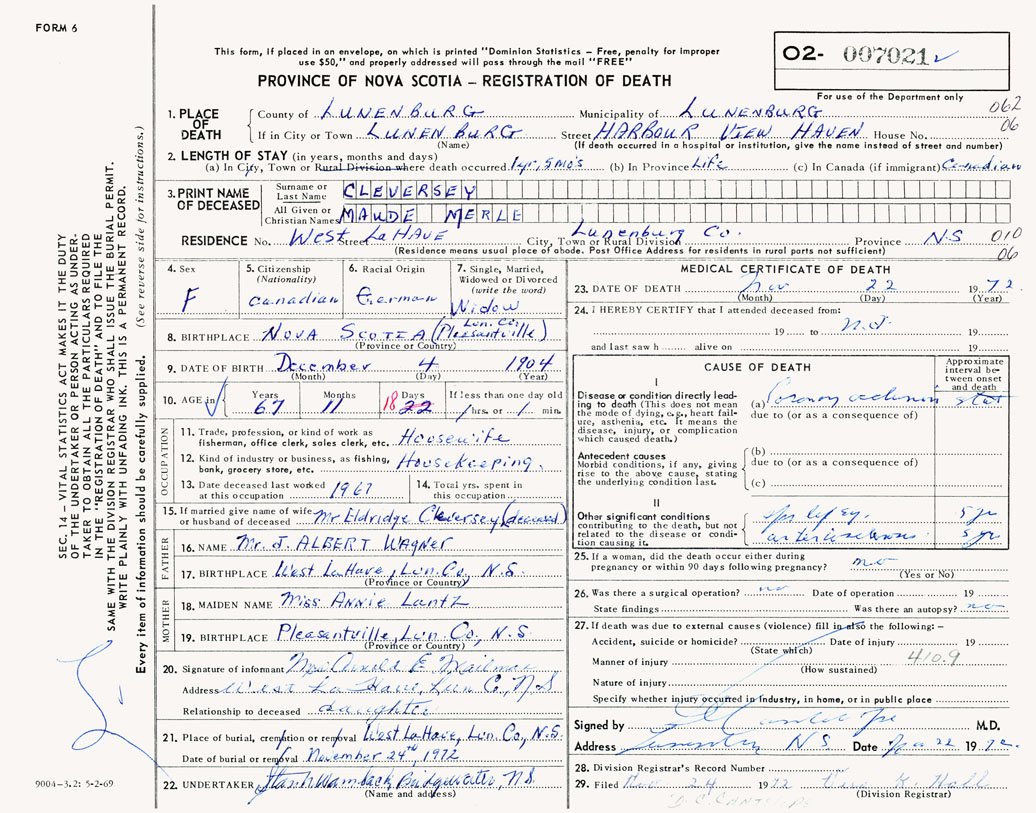 FORM 6
This form, if placed in an envelope, on which is printed "Dominion Statistics – Free, penalty for improper
use $50," and properly addressed will pass through the mail "FREE"
PROVINCE OF NOVA SCOTIA – REGISTRATION OF DEATH
02- 007021
For use of the Department only
062
06
SEC. 14 – VITAL STATISTICS ACT MAKES IT THE DUTY
OF THE UNDERTAKER OR PERSON ACTING AS UNDER-
TAKER TO OBTAIN ALL THE PARTICULARS REQUIRED
IN THE "REGISTRATION OF DEATH" AND TO FILE THE
SAME WITH THE DIVISION REGISTRAR WHO SHALL ISSUE THE BURIAL PERMIT.
WRITE PLAINLY WITH UNFADING INK. THIS IS A PERMANENT RECORD.
Every item of information should be carefully supplied. (See reverse side for instructions.)
1. PLACE OF DEATH
County of LUNENBURG Municipality of LUNENBURG
If in City or Town LUNENBURG Street HARBOUR VIEW HAVEN House No.
(Name) (If death occurred in a hospital or institution, give the name instead of street and number)
2. LENGTH OF STAY (in years, months and days)
(a) In City, Town or Rural Division where death occurred 1yr, 5mo's (b) In Province Life (c) In Canada (if immigrant) Canadian
3. PRINT NAME OF DECEASED
Surname or Last Name CLEVERSEY
All Given or Christian Names MAUDE MERLE
RESIDENCE No. West Street LaHave City, Town or Rural Division Lunenburg Co. Province N.S
(Residence means usual place of abode. Post Office Address for residents in rural parts not sufficient)
010
06
4. Sex
F
5. Citizenship
(Nationality)
Canadian
6. Racial Origin
German
7. Single, Married,
Widowed or Divorced
(write the word)
Widow
8. BIRTHPLACE NOVA SCOTIA (Lun. Co. Pleasantville)
(Province or Country)
9. DATE OF BIRTH December 4 1904
(Month) (Day) (Year)
10. AGE in
Years 67
Months 11
Days 18 22
If less than one day old
/ hrs. or / min.
OCCUPATION
11. Trade, profession, or kind of work as
fisherman, office clerk, sales clerk, etc. Housewife
12. Kind of industry or business, as fishing,
bank, grocery store, etc. Housekeeping.
13. Date deceased last worked
at this occupation 1967
14. Total yrs. spent in
this occupation
15. If married give name of wife
or husband of deceased Mr Eldridge Cleversey (deceased)
FATHER
16. NAME Mr. J. ALBERT WAGNER
17. BIRTHPLACE West LaHave, Lun. Co., N.S.
(Province or Country)
MOTHER
18. MAIDEN NAME Miss Annie Lantz
19. BIRTHPLACE Pleasantville, Lun. Co., N.S
(Province or Country)
20. Signature of informant Mrs. Arnold E.
Address West LaHave, Lun Co, N.S
Relationship to deceased daughter
21. Place of burial, cremation or removal West LaHave, Lun. Co., N.S.
Date of burial or removal November 24th, 1972
22. UNDERTAKER Wamback, Bridgewater, N.S.
(Name and address)
9004-3.2: 5-2-69
MEDICAL CERTIFICATE OF DEATH
23. DATE OF DEATH Nov 22 1972
(Month) (Day) (Year)
24. I HEREBY CERTIFY that I attended deceased from:
19 to 19
and last saw h alive on 19
CAUSE OF DEATH
Approximate
interval be-
tween onset
and death
I
Disease or condition directly lead-
ing to death (This does not mean
the mode of dying, e.g., heart fail-
ure, asthenia, etc. It means the
disease, injury, or complication
which caused death.)
(a) Coronary occlusion stat
due to (or as a consequence of)
Antecedent causes
Morbid conditions, if any, giving
rise to the above cause, stating
the underlying condition last.
(b)
due to (or as a consequence of)
(c)
II
Other significant conditions
contributing to the death, but not
related to the disease or condi-
tion causing it.
5 yr
arteriosclerosis 5 yr
25. If a woman, did the death occur either during
pregnancy or within 90 days following pregnancy? no
(Yes or No)
26. Was there a surgical operation? no Date of operation 19
State findings Was there an autopsy? no
27. If death was due to external causes (violence) fill in also the following: –
Accident, suicide or homicide? Date of injury 19
(State which)
Manner of injury 410.9
(How sustained)
Nature of injury
Specify whether injury occurred in industry, in home, or in public place
Signed by M.D.
Address Lunenburg N S Date Nov 22 1972.
28. Division Registrar's Record Number
29. Filed Nov 24 1972
(Division Registrar)